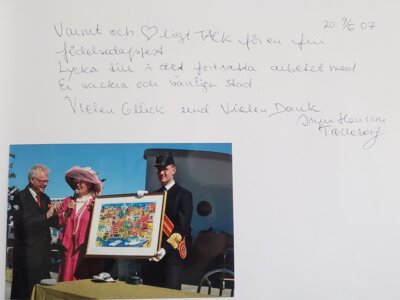 20 9/6 07
Varmt och ♡ligt TACK för en fin
födelsedagsfest
Lycka till i det fortsatta arbetet med
Er vackra och vänliga stad.
Vielen Glück und Vielen Dank
Hansson
Trelleborg